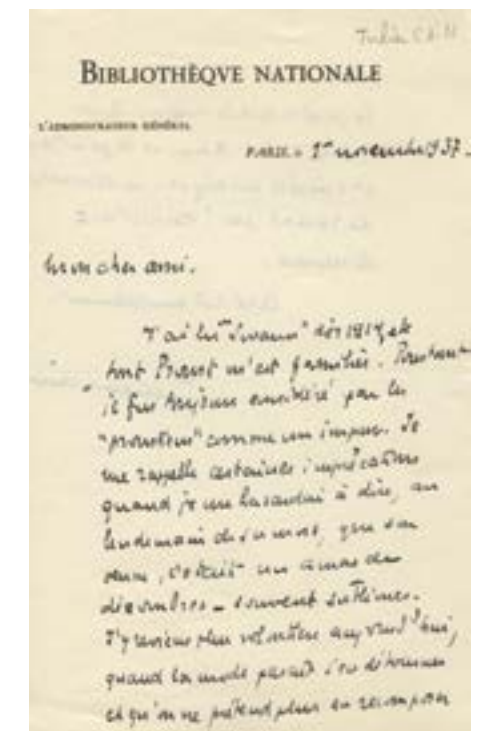 BIBLIOTHÈQVE NATIONALE
L'ADMINISTRATEUR GÉNÉRAL
PARIS, 1er novembre 37.
Mon cher ami.
J'ai lu "Swann" dès 1914 et
tout Proust m'est familier. Pourtant
je fus toujours considéré par les
"proustiens" comme un impur. Je
me rappelle certaines imprécations
quand je me hasardai à dire, au
lendemain de sa mort, que son
œuvre, c'était un amas de
décombres – souvent sublimes.
J'y reviens plus volontiers aujourd'hui,
quand la mode paraît s'en détourner
et qu'on ne prétend plus en recomposer